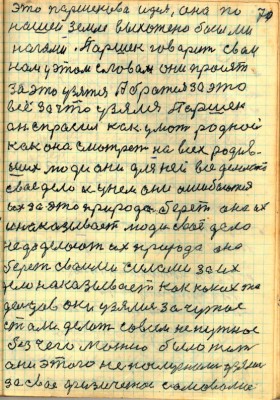 это паршекова идея, она по 79
нашей земле выхожено босыми
ногами. Паршек говарит свам
нам у этом словам они проият
за это узятся Абратся за это
всё за что узялся Паршек
он спрасил как умот родной
как она смотрет на всех родив-
ших люди они для ней всё делают
сваё дело к у нем они ошибаются
их за это природа берет она их
и наказывает люди своё дело
недоделоют их природа она
берет сваими силами за их
дело наказывает как каких то
они узялися за чужое
стали делот совсем не нужное
без чего можно была жить
они этого не узяли
за свае физическое самоволие